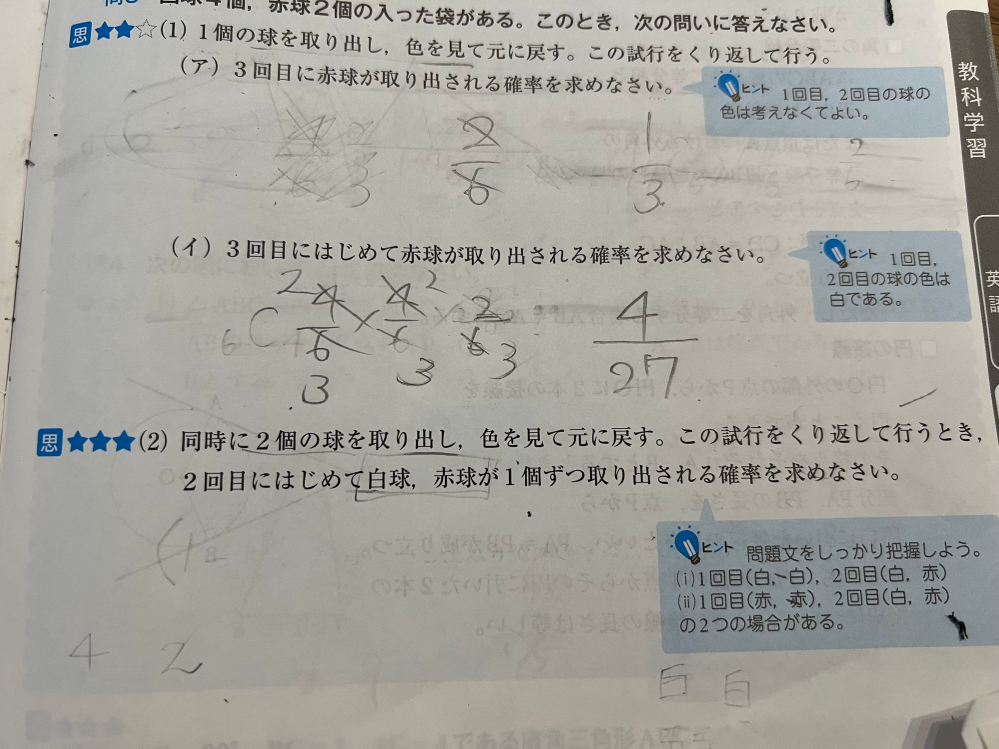 白球4個，赤球2個の入った袋がある。このとき，次の問いに答えなさい。
思★★☆(1) 1個の球を取り出し，色を見て元に戻す。この試行をくり返して行う。
(ア) 3回目に赤球が取り出される確率を求めなさい。
ヒント 1回目，2回目の球の
色は考えなくてよい。
2/6
1/3
(イ) 3回目にはじめて赤球が取り出される確率を求めなさい。
ヒント 1回目，
2回目の球の色は
白である。
4/6 × 4/6 × 2/6 = 4/27
思★★★(2) 同時に2個の球を取り出し，色を見て元に戻す。この試行をくり返して行うとき，
2回目にはじめて白球，赤球が1個ずつ取り出される確率を求めなさい。
ヒント 問題文をしっかり把握しよう。
(i)1回目(白，白)，2回目(白，赤)
(ii)1回目(赤，赤)，2回目(白，赤)
の2つの場合がある。
4 2
白 白
教科学習
英語